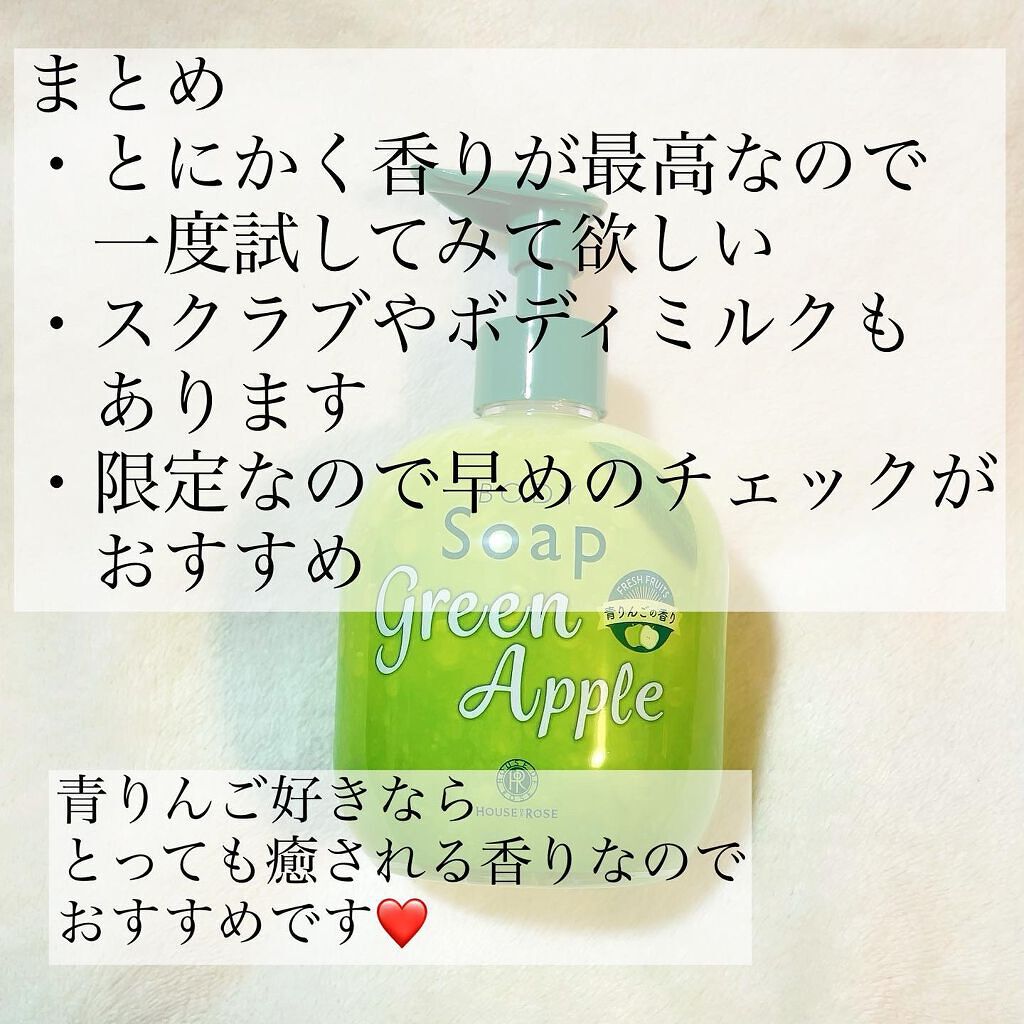 まとめ
・とにかく香りが最高なので
一度試してみて欲しい
・スクラブやボディミルクも
あります
・限定なので早めのチェックが
おすすめ
BODY
Soap
Green
Apple
FRESH FRUITS
青りんごの香り
HOUSE OF ROSE
HR
HOUSE OF ROSE
青りんご好きなら
とっても癒される香りなので
おすすめです❤️